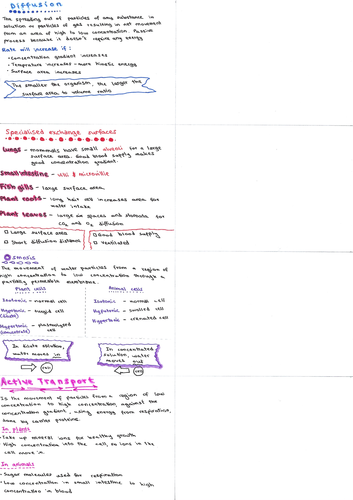 Diffusion
The spreading out of particles of any substance, in
solution or particles of gas resulting in net movement
from an area of high to low concentration. Passive
process because it doesn't require any energy
Rate will increase if:
• Concentration gradient increases
• Temperature increases - more kinetic energy
• Surface area increases
The smaller the organism, the larger the
surface area to volume ratio
Specialised exchange surfaces
Lungs - mammals have small alveoli for a large
surface area. Good blood supply makes
good concentration gradient.
Small intestine - villi & microvilli
Fish gills - large surface area
Plant roots - long hair cell increases area for
water intake
Plant leaves - large air spaces and stomata for
CO2 and O2 diffusion
Large surface area
Good blood supply
Short diffusion distance
Ventilated
Osmosis
The movement of water particles from a region of
high concentration to low concentration through a
partially permeable membrane.
Plant cells
Isotonic - normal cell
Hypotonic - turgid
(dilute) cell
Hypertonic - plasmolysed
(concentrate) cell
Animal cells
Isotonic - normal cell
Hypotonic - swelled cell
Hypertonic - crenated cell
In dilute solution,
water moves in
cell
In concentrated
solution, water
moves out
cell
Active Transport
Is the movement of particles from a region of low
concentration to high concentration against the
concentration gradient, using energy from respiration,
done by carrier proteins.
In plants
Take up mineral ions for healthy growth
High concentration into the cell, so ions in the
cell move in
In animals
Sugar molecules used for respiration
Low concentration in small intestine to high
concentration in blood